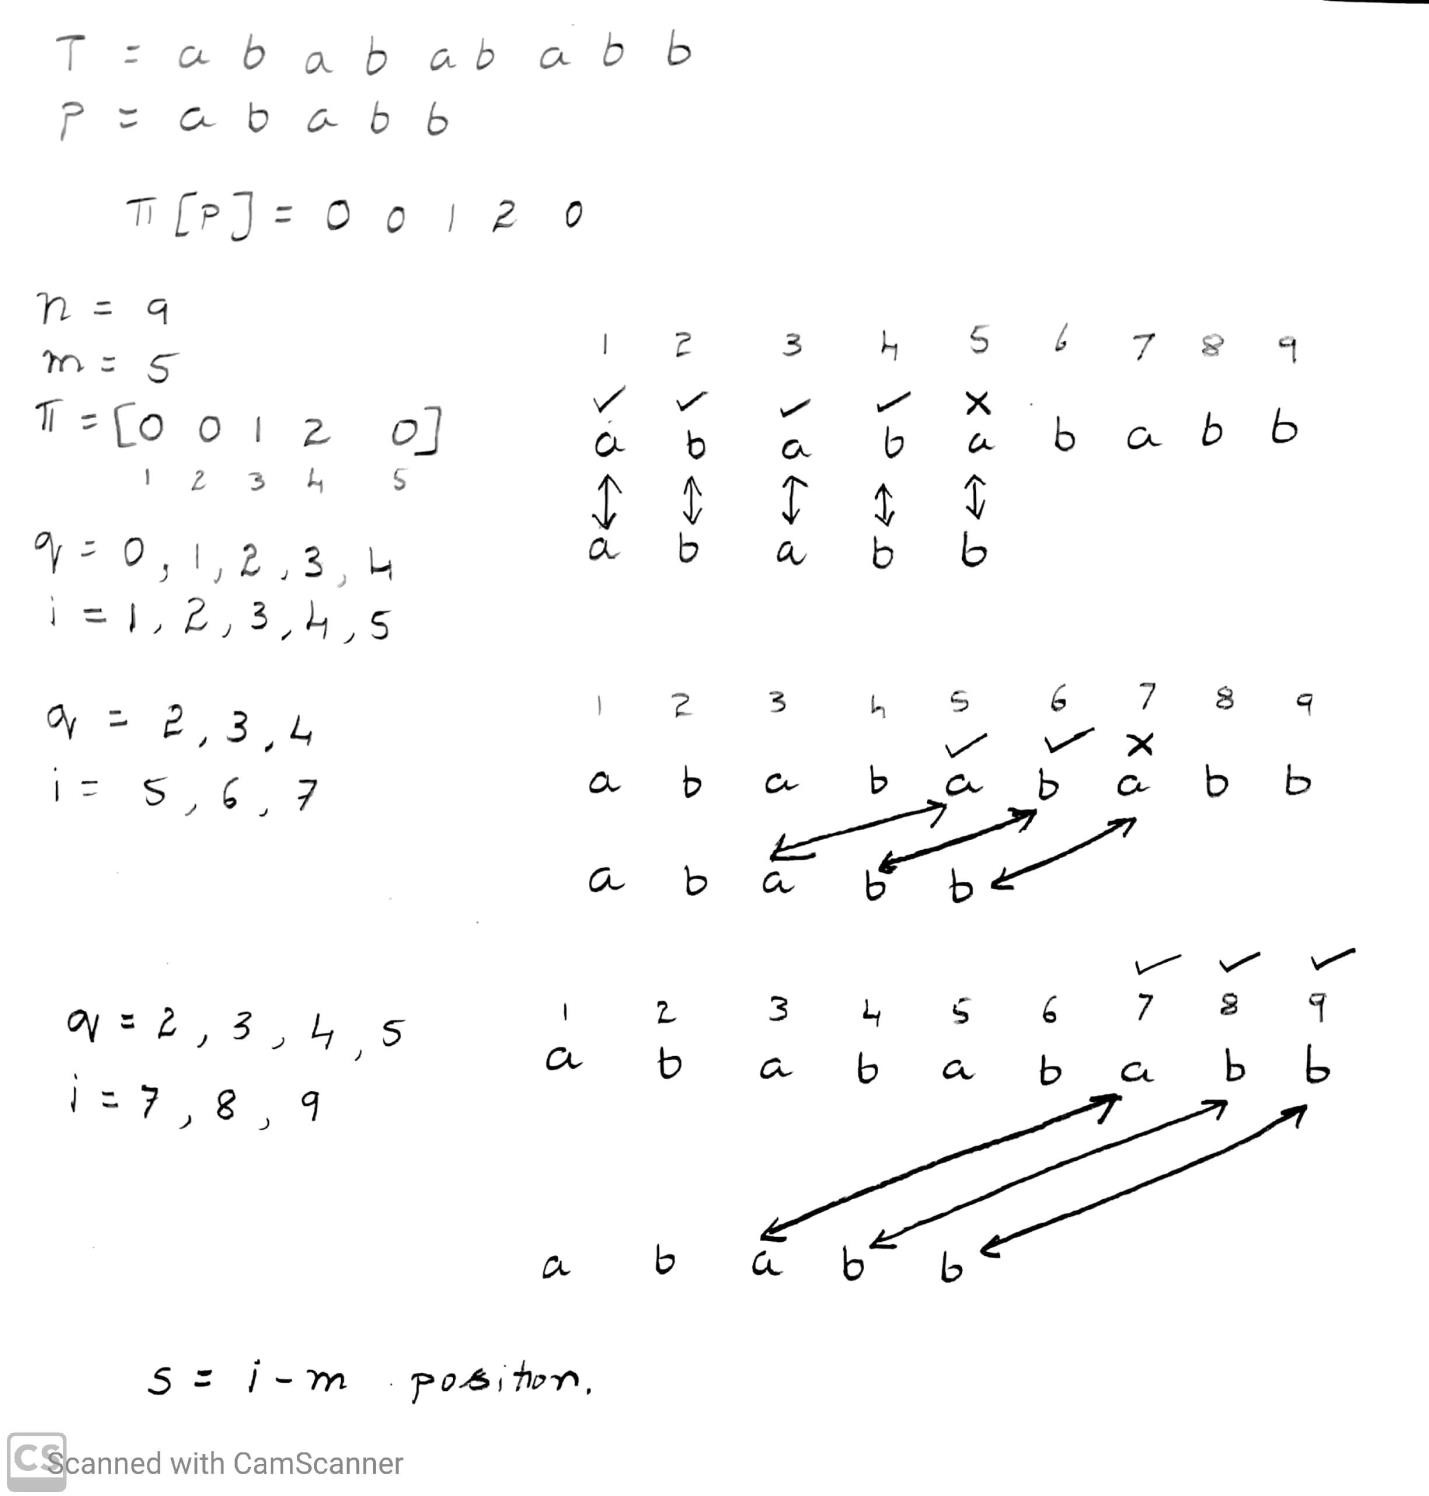 T = a b a b a b a b b
P = a b a b b
π [P] = 0 0 1 2 0
n = 9
m = 5
π = [0 0 1 2 0]
1 2 3 4 5
q = 0, 1, 2, 3, 4
i = 1, 2, 3, 4, 5
1 2 3 4 5 6 7 8 9
✓ ✓ ✓ ✓ ×
a b a b a b a b b
↕ ↕ ↕ ↕ ↕
a b a b b
q = 2, 3, 4
i = 5, 6, 7
1 2 3 4 5 6 7 8 9
✓ ✓ ×
a b a b a b a b b
a b a b b
q = 2, 3, 4, 5
i = 7, 8, 9
✓ ✓ ✓
1 2 3 4 5 6 7 8 9
a b a b a b a b b
a b a b b
s = i - m position.
CS Scanned with CamScanner